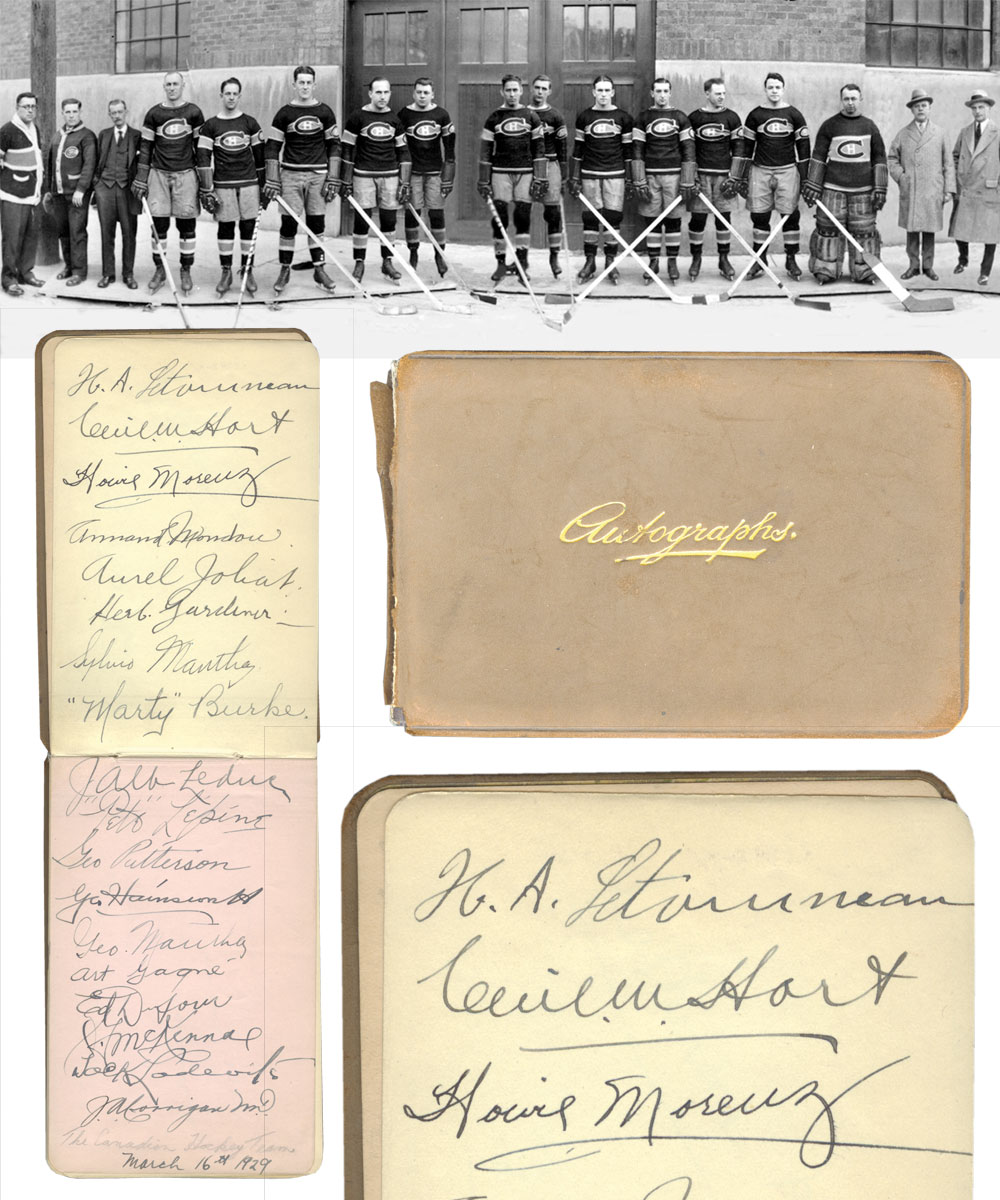 H. A. Létourneau
Cecil. M. Hart
Howie Morenz
Armand Mondou
Aurel Joliat.
Herb. Gardiner
Sylvio Mantha
"Marty" Burke.
J Alb Leduc
"Pit" Lépine
Geo Patterson
Geo Hainsworth
Geo. Mantha
Art Gagné
Ed Dufour
J. McKenna
Jack
J A Corrigan MD
The Canadian Hockey Team
March 16th 1929
Autographs.
H. A. Létourneau
Cecil. M. Hart
Howie Morenz